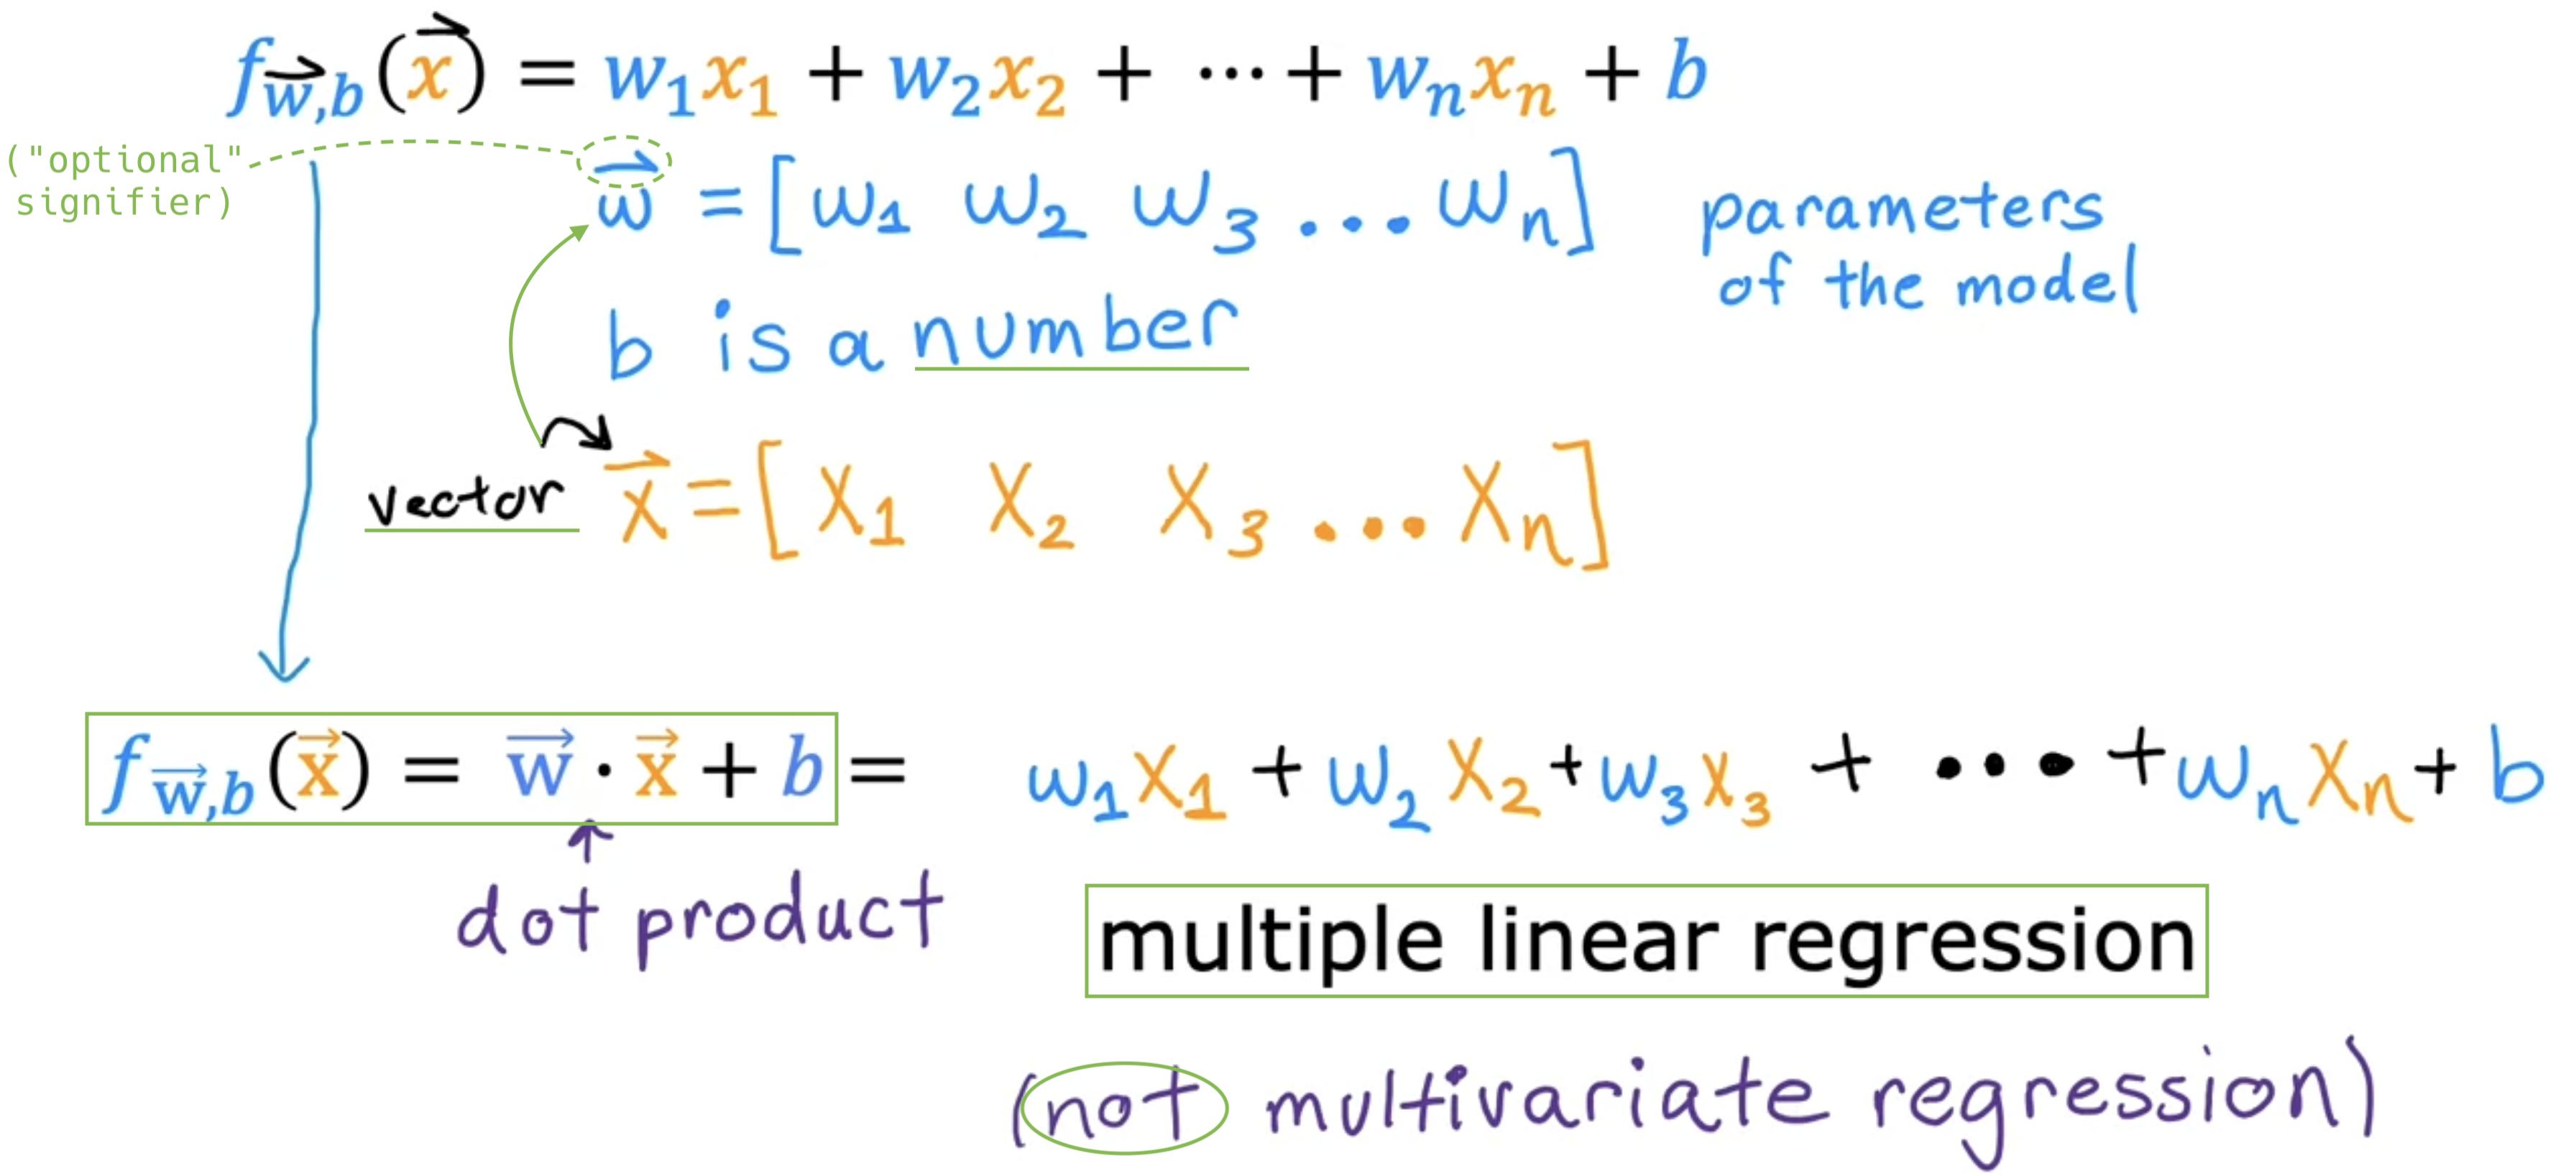 f_{\vec{w},b}(\vec{x}) = w_1x_1 + w_2x_2 + ⋯ + w_nx_n + b
("optional" signifier)
\vec{w} = [w_1 w_2 w_3 ... w_n]
parameters of the model
b is a number
vector \vec{x} = [x_1 x_2 x_3 ... x_n]
f_{\vec{w},b}(\vec{x}) = \vec{w} · \vec{x} + b = w_1x_1 + w_2x_2 + w_3x_3 + ... + w_nx_n + b
dot product
multiple linear regression
(not multivariate regression)